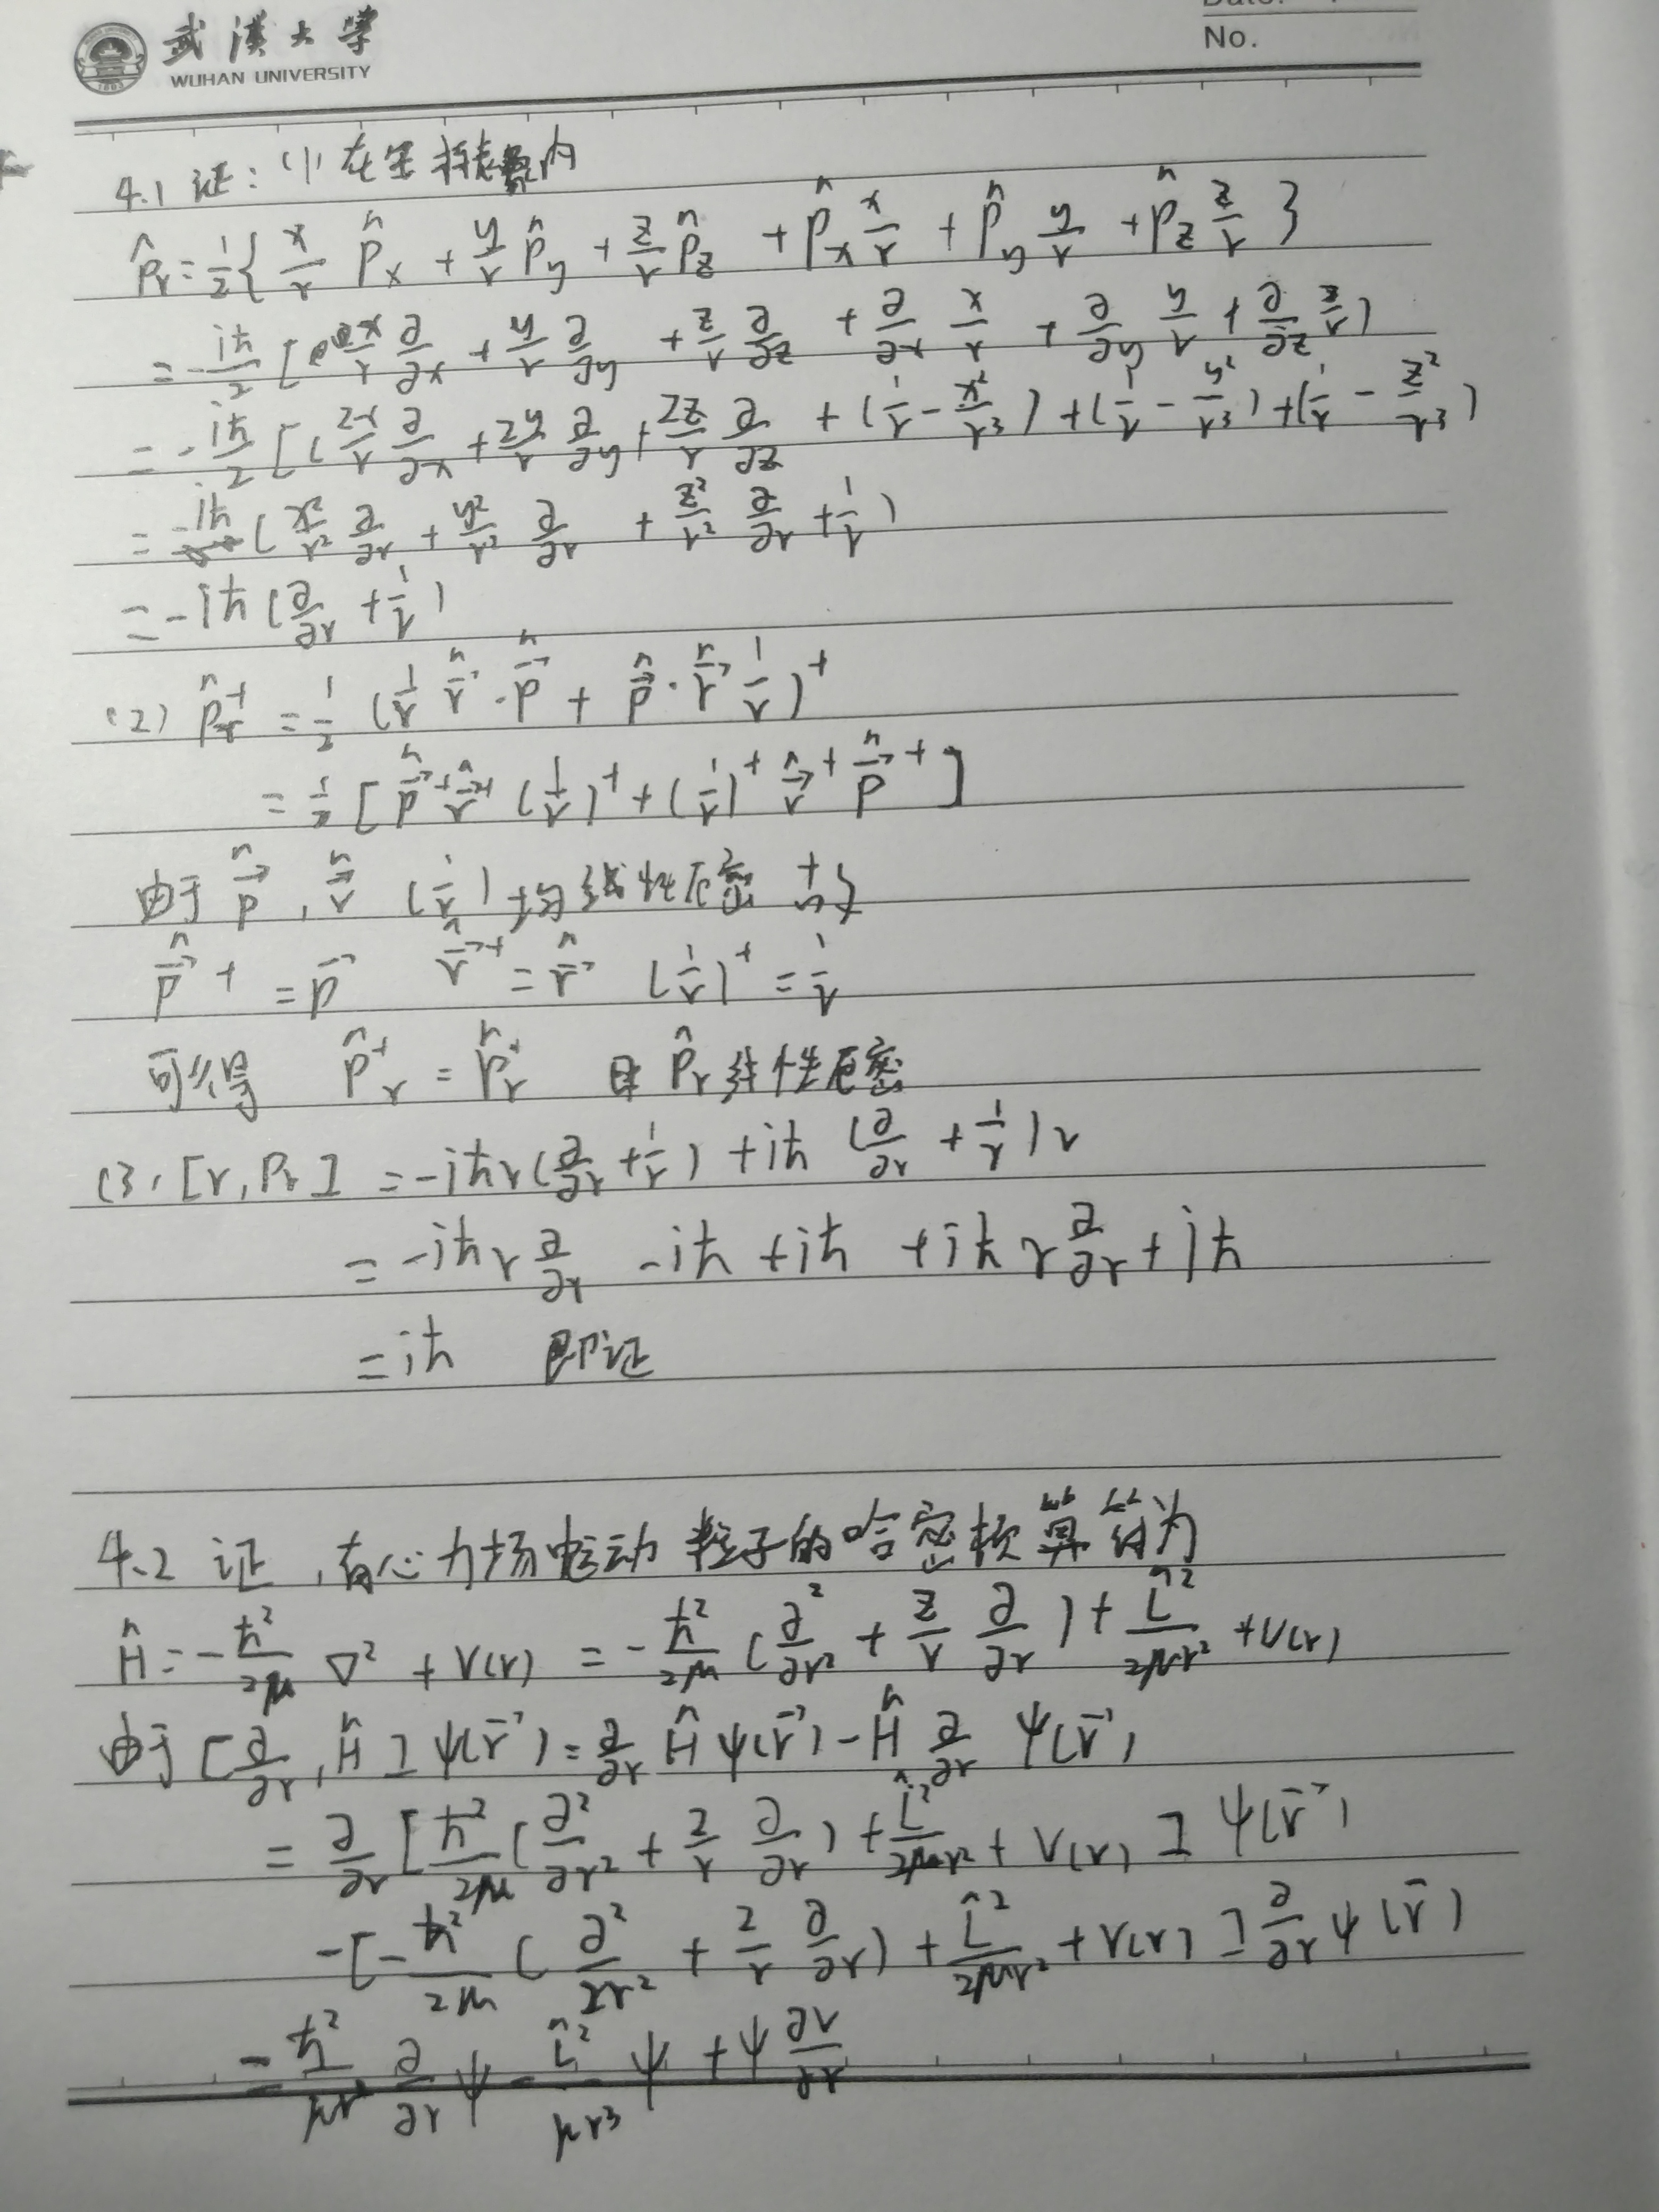 武漢大学
WUHAN UNIVERSITY
No.
4.1 证: (1) 在坐标表象内
p̂_r = 1/2 { x/r p̂_x + y/r p̂_y + z/r p̂_z + p̂_x x/r + p̂_y y/r + p̂_z z/r }
= -iħ/2 [ x/r ∂/∂x + y/r ∂/∂y + z/r ∂/∂z + ∂/∂x x/r + ∂/∂y y/r + ∂/∂z z/r )
= -iħ/2 [ ( 2x/r ∂/∂x + 2y/r ∂/∂y + 2z/r ∂/∂z + (1/r - x²/r³) + (1/r - y²/r³) + (1/r - z²/r³)
= -iħ ( x²/r² ∂/∂r + y²/r² ∂/∂r + z²/r² ∂/∂r + 1/r )
= -iħ ( ∂/∂r + 1/r )
(2) p̂_r⁺ = 1/2 ( 1/r r̂⃗ · p̂⃗ + p̂⃗ · r̂⃗ 1/r )⁺
= 1/2 [ p̂⃗⁺ r̂⃗⁺ (1/r)⁺ + (1/r)⁺ r̂⃗⁺ p̂⃗⁺ ]
由于 p̂⃗, r̂⃗ (1/r) 均线性厄密
p̂⃗⁺ = p⃗ r̂⃗⁺ = r̂⃗ (1/r)⁺ = 1/r
可以得 p̂_r⁺ = p̂_r⁺ 即 p̂_r 线性厄密
(3) [r, P_r] = -iħr(∂/∂r + 1/r) + iħ (∂/∂r + 1/r) r
= -iħr ∂/∂r - iħ + iħ + iħ r ∂/∂r + iħ
= iħ 即证
4.2 证, 有心力场中运动粒子的哈密顿算符为
Ĥ = -ħ²/2μ ∇² + V(r) = -ħ²/2μ (∂²/∂r² + 2/r ∂/∂r) + L̂²/2μr² + V(r)
由于 [∂/∂r, Ĥ] ψ(r⃗) = ∂/∂r Ĥ ψ(r⃗) - Ĥ ∂/∂r ψ(r⃗)
= ∂/∂r [ħ²/2μ (∂²/∂r² + 2/r ∂/∂r) + L̂²/2μr² + V(r)] ψ(r⃗)
-[-ħ²/2μ (∂²/∂r² + 2/r ∂/∂r) + L̂²/2μr² + V(r)] ∂/∂r ψ(r⃗)
= ħ²/μr² ∂/∂r ψ - L̂²/μr³ ψ + ψ ∂V/∂r